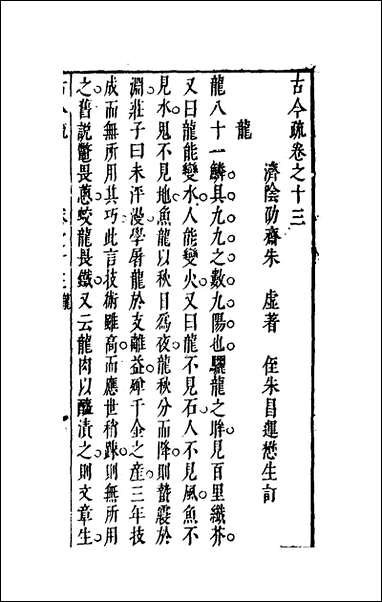 古今疏卷之十三
濟陰劭齋朱　虛著　侄朱昌運懋生訂
龍
龍八十一鱗具九九之數九陽也驪龍之眸見百里纖芥
又曰龍能變水人能變火又曰龍不見石人不見風魚不
見水鬼不見地魚龍以秋日為夜龍秋分而降則蟄寢於
淵莊子曰朱泙漫學屠龍於支離益殫千金之產三年技
成而無所用其巧此言技術雖高而應世稍踈則無所用
之舊說鼈畏蔥蛟龍畏鐵又云龍肉以醢漬之則文章生
古今疏　卷之十三 龍